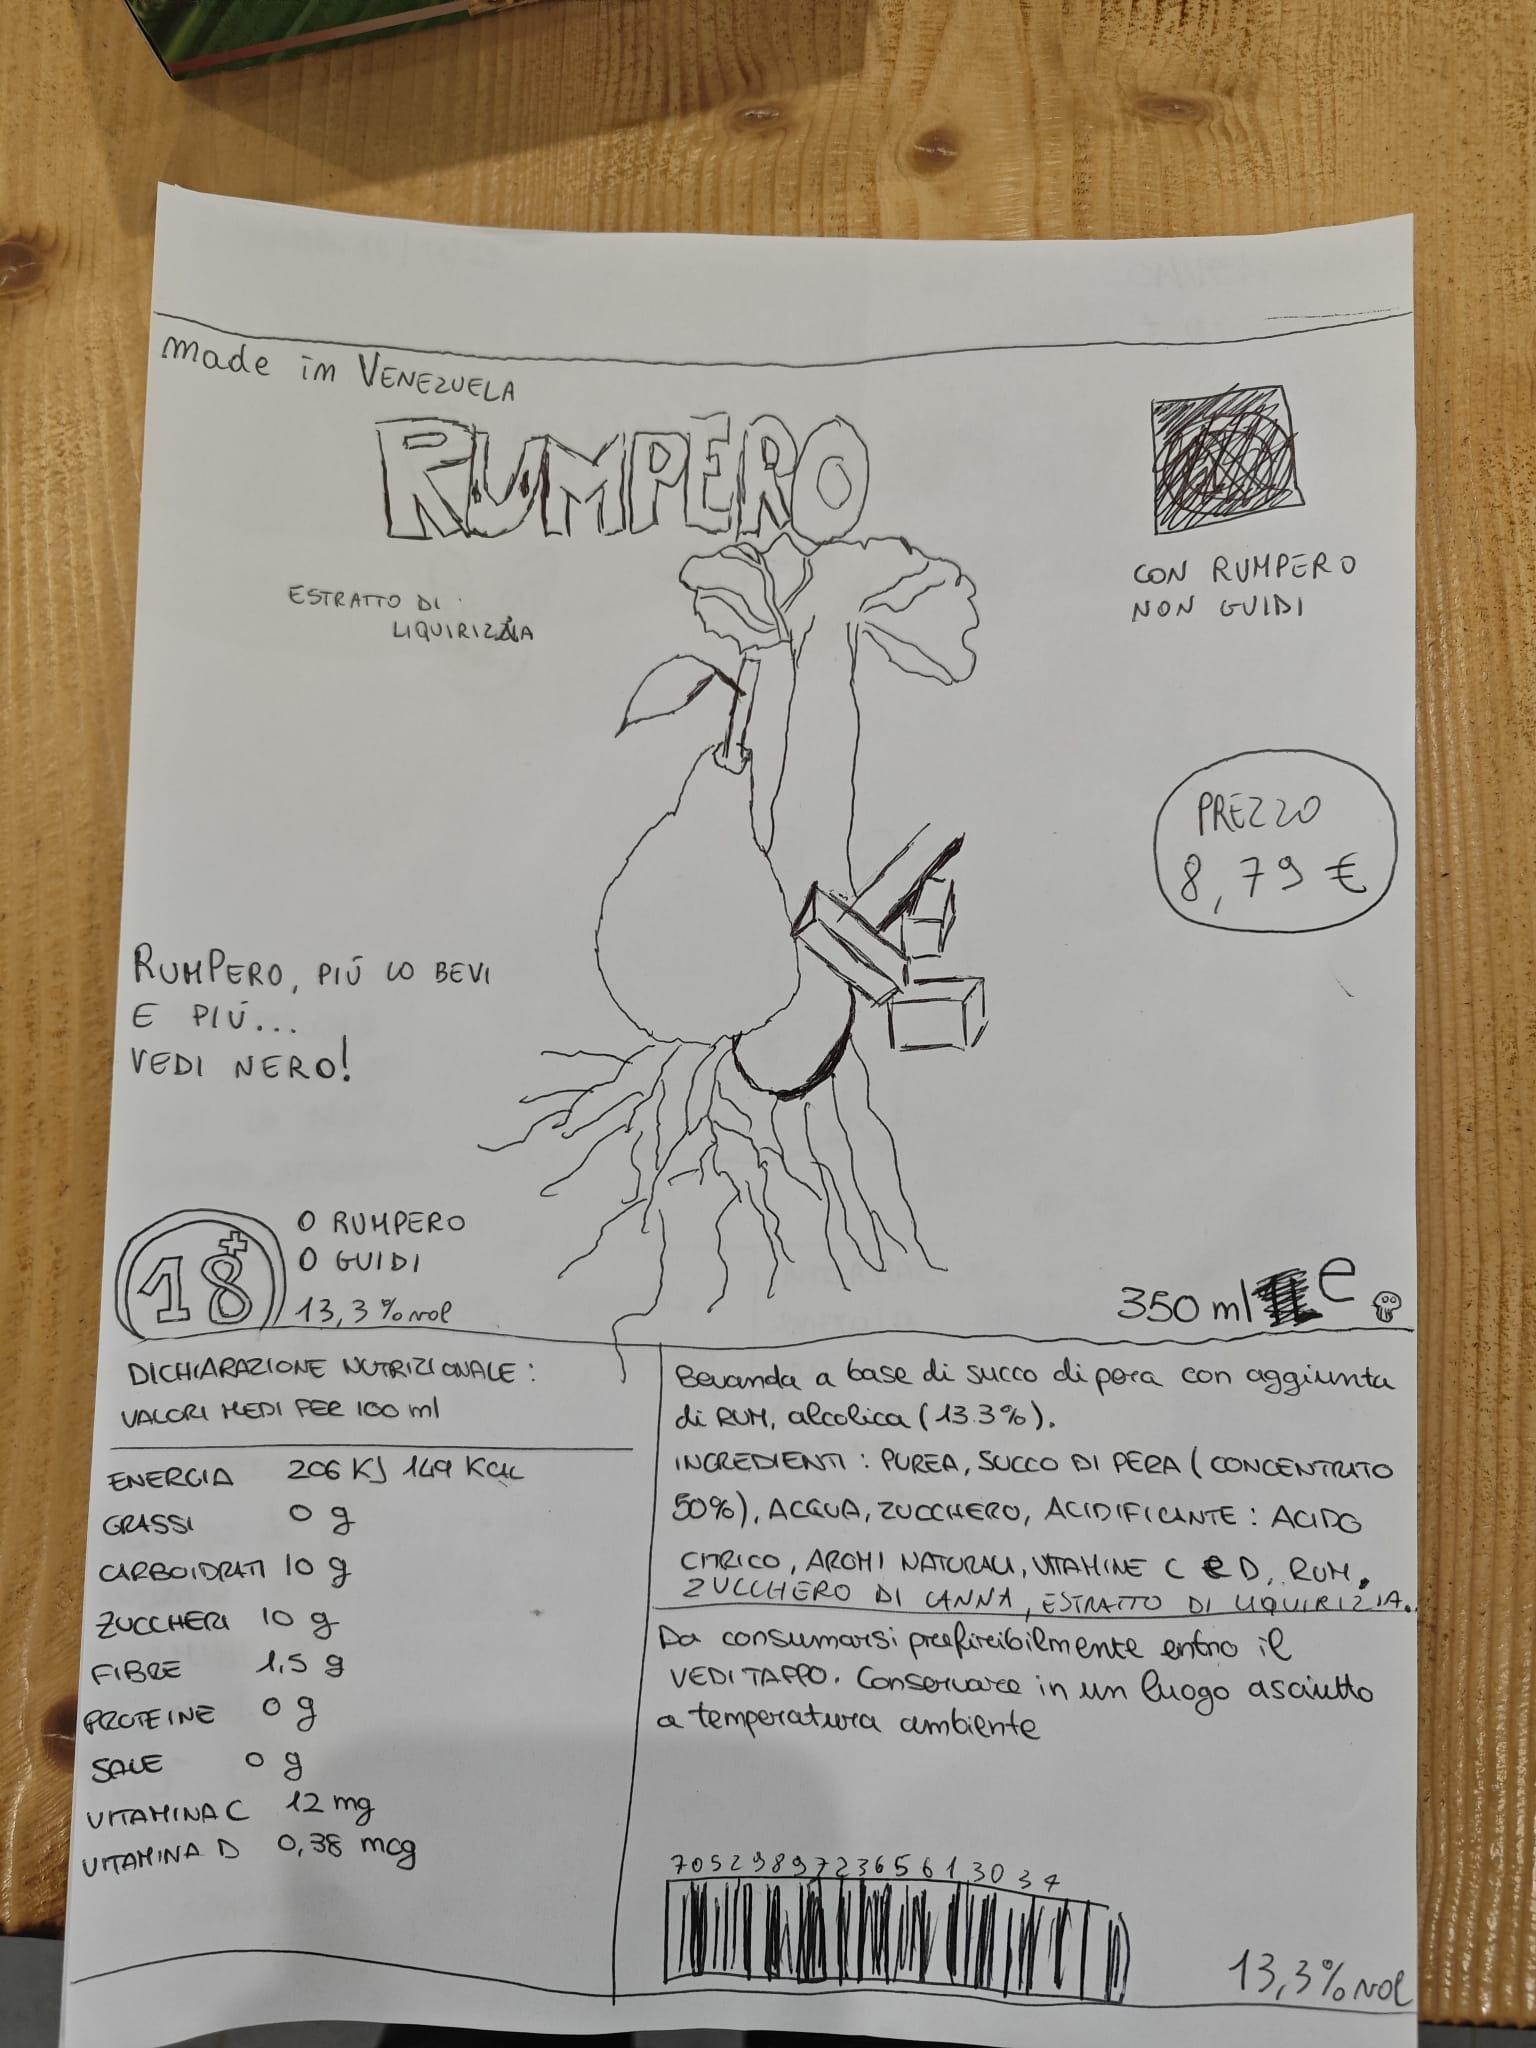 made in VENEZUELA
RUMPERO
ESTRATTO DI
LIQUIRIZIA
CON RUMPERO
NON GUIDI
PREZZO
8,79 €
RUMPERO, PIÚ LO BEVI
E PIÚ...
VEDI NERO!
18+
O RUMPERO
O GUIDI
13,3 % vol
350 ml e
DICHIARAZIONE NUTRIZIONALE:
VALORI MEDI PER 100 ml
ENERGIA 206 KJ 149 Kcal
GRASSI 0 g
CARBOIDRATI 10 g
ZUCCHERI 10 g
FIBRE 1,5 g
PROTEINE 0 g
SALE 0 g
VITAMINA C 12 mg
VITAMINA D 0,38 mcg
Bevanda a base di succo di pera con aggiunta
di RUM, alcolica (13.3%).
INGREDIENTI: PUREA, SUCCO DI PERA (CONCENTRATO
50%), ACQUA, ZUCCHERO, ACIDIFICANTE: ACIDO
CITRICO, AROMI NATURALI, VITAMINE C e D, RUM,
ZUCCHERO DI CANNA, ESTRATTO DI LIQUIRIZIA.
Da consumarsi preferibilmente entro il
VEDI TAPPO. Conservare in un luogo asciutto
a temperatura ambiente
705298972365613034
13,3% vol